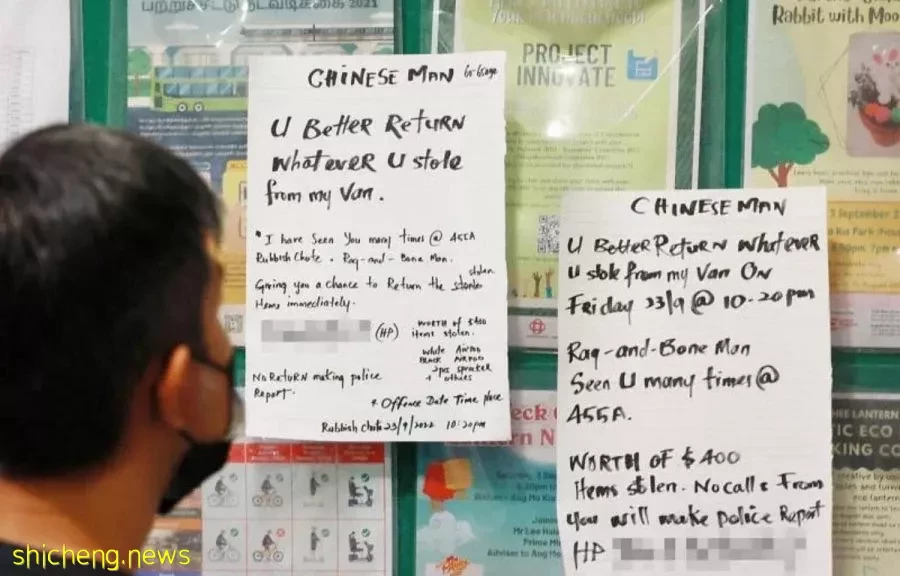 பற்றுச்சீட்டு நடவடிக்கை 2021
PROJECT
INNOVATE
Rabbit with Moo
CHINESE MAN
U BETTER RETURN
WHATEVER U stole
from my Van.
* I have Seen You many times @ 455A
Rubbish Chute. Rag-and-Bone Man.
stolen
Giving you a chance to Return the
Items immediately.
(HP)
WORTH OF $400
items stolen.
White AirPod
BLACK AIRPOD
2pcs
+ others
NO RETURN making police
Report.
+ Offence Date Time place
Rubbish chute 23/9/2022 10:20pm
CHINESE MAN
U BETTER RETURN WHATEVER
U stole from my Van ON
Friday 23/9 @ 10-20pm
Rag-and-Bone Man
Seen U many times @
455A.
WORTH OF $400
Items stolen. No calls From
you will make police Report
HP
3 September 2
Mr Lee Hsie
Prime Mi
Adviser to Ang Mo
HEE LANTERN
TIC ECO
KING CO
shicheng.news